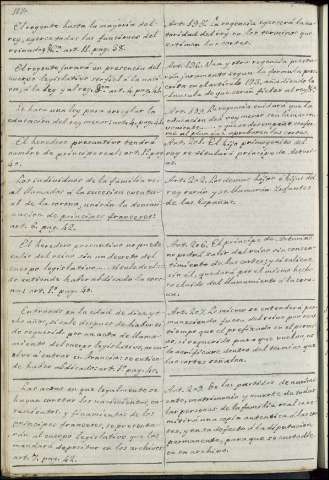 El regente hasta la mayoria del
rey, ejerce todas las funciones del
reinado; art. 11. pag. 38.
El regente jurará en presencia del
cuerpo legislativo ser fiel á la naci-
on, á la ley y al rey;
Se hará una ley para arreglar la
educacion del rey menor; art. 4. pag. 40.
El heredero presuntivo tendrá
nombre de principe real; art. 1.º pag.
40.
Los individuos de la familia re-
al llamados á la sucesion eventu-
al de la corona, añadirán la denomi-
nacion de principes franceses:
art. 6. pag. 42.
El heredero presuntivo no puede
salir del reino sin un decreto del
cuerpo legislativo
se entiende haber abdicado la coro-
na: art. 2.º pag. 40.
Estando en la edad de diez y o-
cho años, si sale despues de haber si-
do requerido por un acto de llama-
miento del cuerpo legislativo, no vu-
elve á entrar en Francia: se entien-
de haber abdicado: art. 2.º pag. 40.
Las actas en que legalmente se
hagan constar los nacimientos, ca-
samientos, y finamientos de los
principes franceses, se presenta-
rán al cuerpo legislativo que las
mandará depositar en los archivos
art. 7. pag. 42.
Art. 195. La regencia ejercerá la au-
toridad del rey en los términos que
estimen las cortes.
Art. 196. Una y otra regencia presta-
rán juramento segun la formula pres-
crita en el articulo 173, añadiendo la
clausula de que serán fieles al rey
Art. 198. La regencia cuidará que la
educacion del rey menor sea la mas con-
veniente
me al plan que aprobaren las cortes.
Art. 201. El hijo primogenito del
rey se titulará principe de Asturi-
as.
Art. 202. Los demas hijos é hijas del
rey serán y se llamarán Infantes
de las Españas.
Art. 206. El principe de Asturias
no podrá salir del reino sin consen-
timiento de las cortes, y si saliere
sin él, quedará por el mismo hecho
excluido del llamamiento á la coro-
na.
Art. 207. Lo mismo se entenderá per-
maneciendo fuera del reino por mas
tiempo que el prefijado en el permi-
so, si requerido para que vuelva, no
lo verificare dentro del termino que
las cortes señalen.
Art. 209. De las partidas de nacimi-
ento, matrimonio y muerte de todas
las personas de la familia real se re-
mitirá una copia autentica á las cor-
tes, y en su defecto á la diputacion
permanente, para que se custodie
en su archivo.